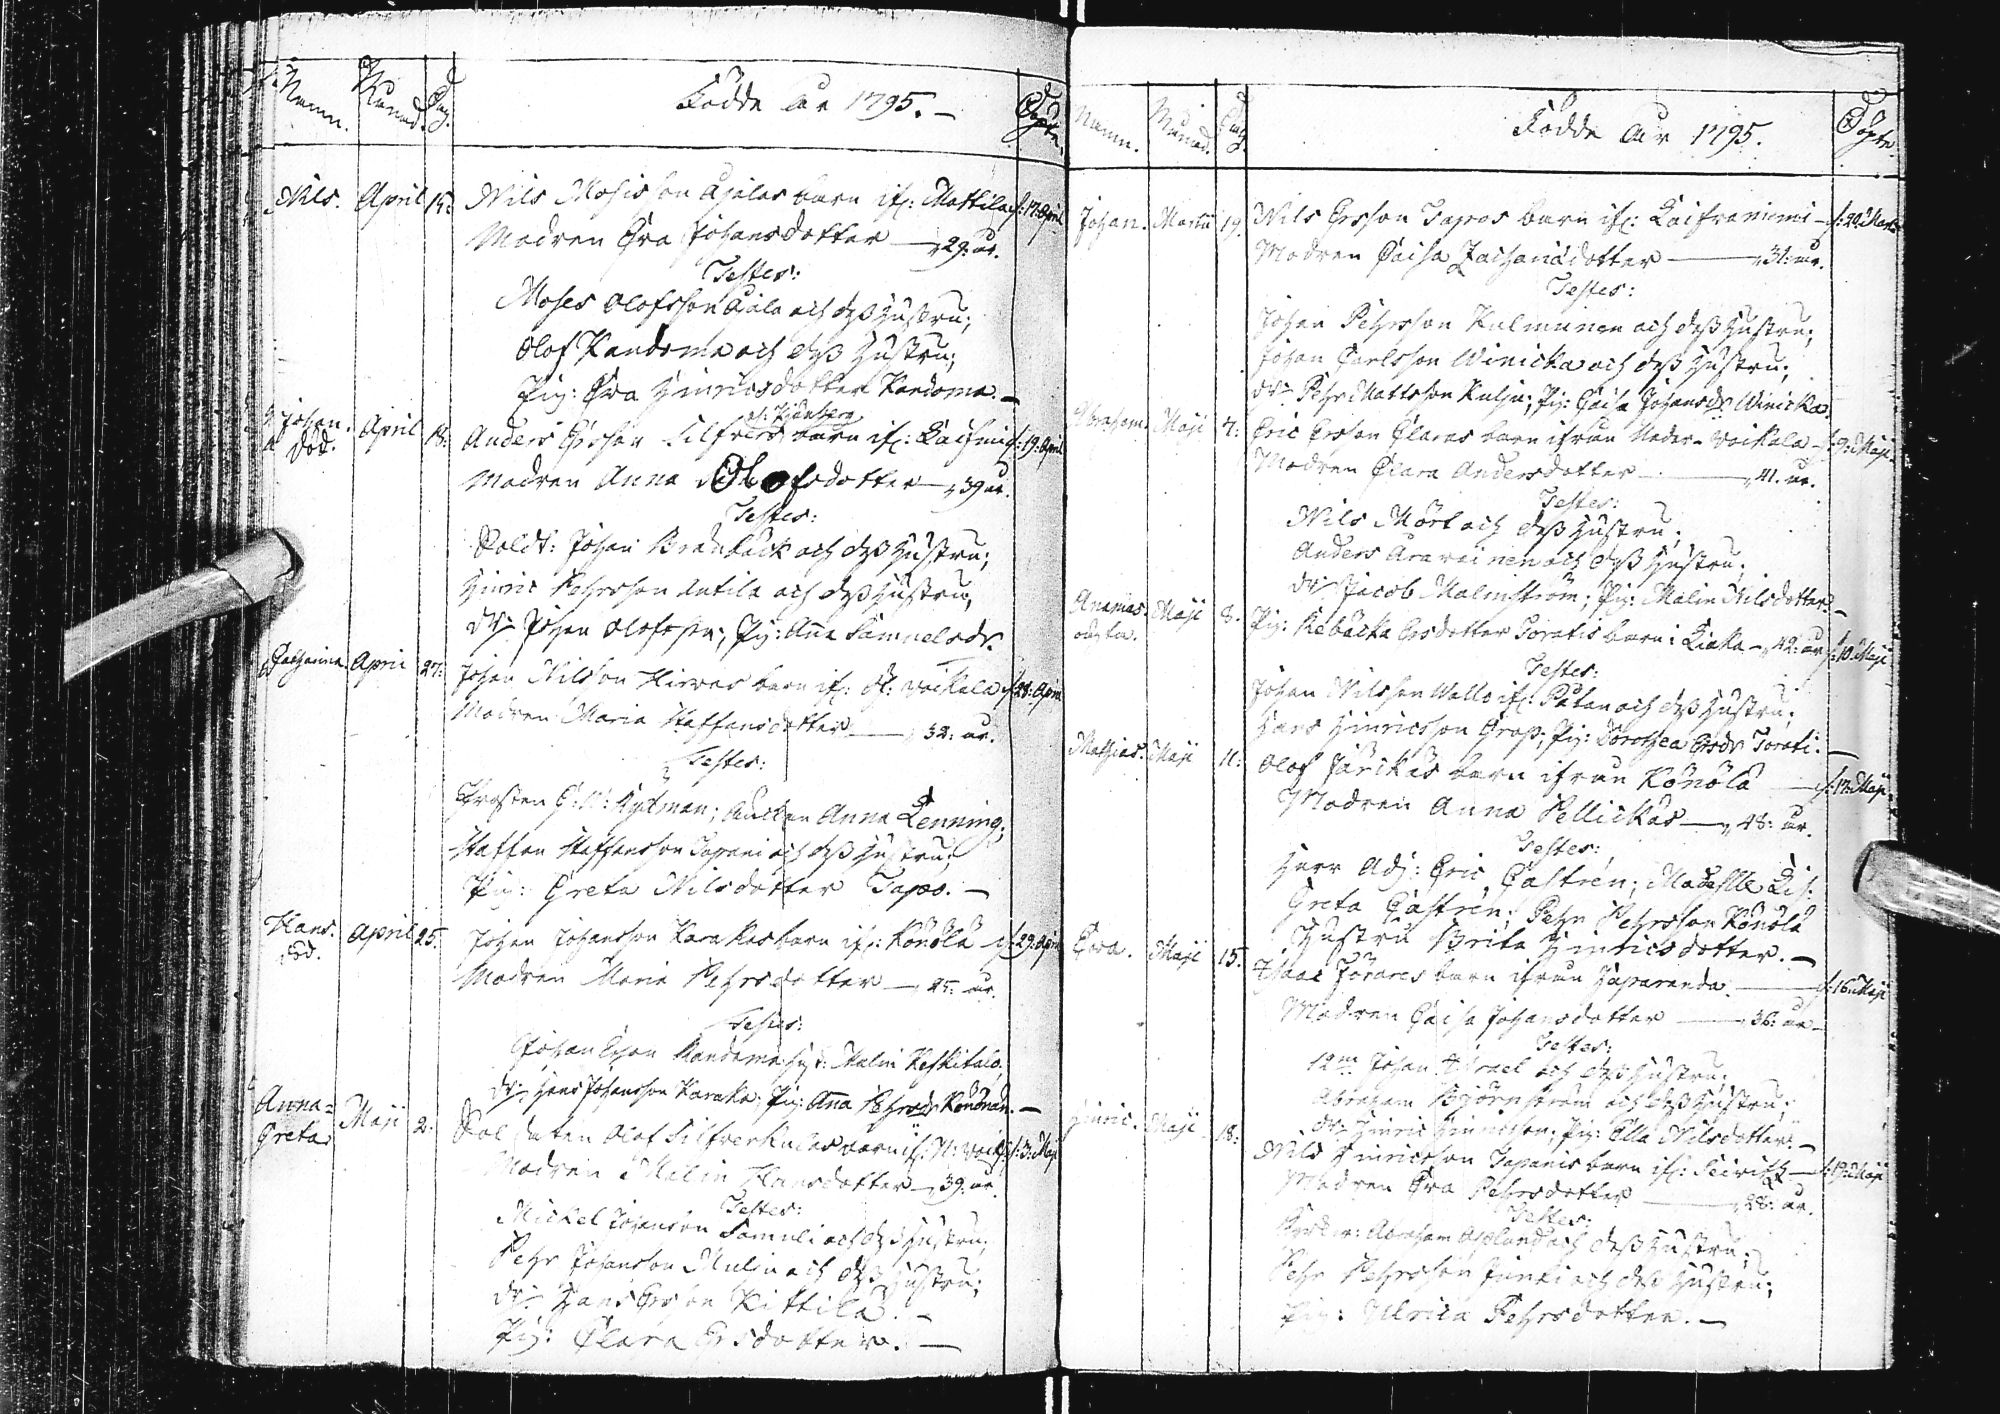 Namn. Månad. Dag. Födde År 1795. Döpte.
Nils. April 15: Nils Mosisson Ajalas barn ifr: Mattila f: 17. April
Modren Eva Johansdotter — 29: år.
Testes:
Moses Olofsson Ajala och dess Hustru;
Olof Kandoma och dess Hustru;
Pig: Eva Hinricsdotter Kandoma. —
Johan. April 18: Anders Ersson Silfvers barn ifr: f: 19: April
död.
Modren Anna Olofsdotter — 39 år.
Testes:
Soldt: Johan Brandback och dess Hustru;
Hinric Pehrsson Antila och dess Hustru;
Dr: Johan Olofsson; Pig: Anna Samuelsdr.
Catharina. April 27: Johan Nilsson Hirvas barn ifr: Vojakala f: 28: April
Modren Maria Staffansdotter — 32: år.
Testes:
Nyman; Anna Lenning;
Staffan Staffansson Tapani och dess Hustru;
Pig: Greta Nilsdotter Tapos. —
Hans. April 25. Johan Johansson Karakas barn ifr: Könölä f: 29: April
död.
Modren Maria Pehrsdotter — 25: år.
Testes:
Johan Ersson Kandoma Hust: Malin Keskitalo;
Dr: Hans Johansson Karaka; Pig: Anna Pehrsdr Könönen. —
Anna- Maji 2: Soldaten Olof Silfverkulas barn ifr: N: f: 3: Maji
Greta
Modren Malin Hansdotter — 39: år.
Testes:
Mickel Johansson Samuli och dess Hustru;
Pehr Johansson Mulin och dess Hustru;
Dr: Hans Ersson Kittilä. —
Pig: Clara Ersdotter. —
Namn. Månad. Dag. Födde År 1795. Döpte.
Johan. Martii 19. Nils Ersson Tapos barn ifr: Laifvaniemi — f: 20. Martii
Modren Caisa Zachariasdotter — 31: år.
Testes:
Johan Pehrsson Kulmunen och dess Hustru;
Johan Carlsson Winicka och dess Hustru;
Dr: Pehr Mattsson; Pig: Caisa Johansdr Winicka
Abraham. Maji 7: Eric Ersson Claras barn ifrån Neder-Vojakala — f: 9: Maji
Modren Clara Andersdotter — 41. år.
Testes:
Nils Mört och dess Hustru;
Anders och dess Hustru;
Dr: Jacob Malmström; Pig: Malin Nilsdotter. —
Ananias Maji 8. Pig: Rebäcka Ersdotter Toratis barn i Liaka — 42: år f: 10. Maji
oägta.
Testes:
Johan Nilsson Wallo ifr: och dess Hustru;
Hans Hinricsson; Pig: Dorothea Ersdr Torati. —
Mathias. Maji 11: Olof Järickäs barn ifrån Könölä — f: 12: Maji
Modren Anna Pellickäs — 43: år.
Testes:
Herr Adj: Eric Castrén; Madeslle Lis:
Greta Castrén; Pehr Pehrsson Könölä
Hustru Brita Hinricsdotter. —
Eva. Maji 15. Isaac barn ifrån Haparanda. — f: 16: Maji
Modren Caisa Johansdotter — 36: år —
Testes:
Johan Israel och dess Hustru;
Abraham Björnström och dess Hustru;
Dr: Hinric Hinricsson; Pig: Ella Nilsdotter. —
Hinric. Maji 18: Nils Hinricsson Tapanis barn ifr: — f: 19: Maji
Modren Eva Pehrsdotter — 28: år.
Testes:
Abraham Asplund och dess Hustru;
Pehr Pehrsson Junki och dess Hustru;
Pig: Ulrica Pehrsdotter. —